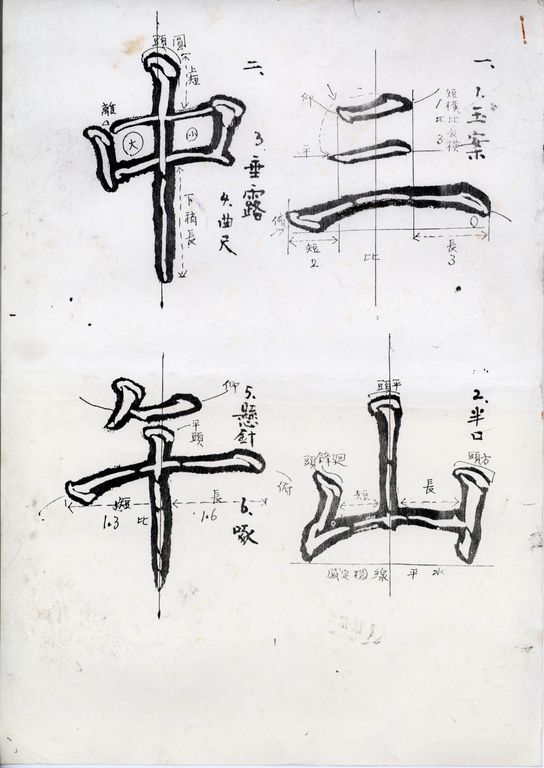 一、
1.玉案
三
短橫比長橫
1比3
仰
平
俯
短 比 長
2 3
2.半口
山
平頭
廻鋒頭
方頭
短 長
水平線穩定感
二、
3.垂露
4.曲尺
中
圓頭
上短
離
大 小
下稍長
5.懸針
6.啄
午
仰
平頭
俯
短 比 長
1.3 1.6